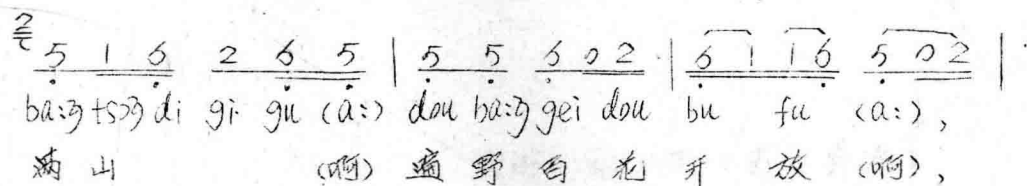 5 1 6 2 6 5 | 5 5 6 0 2 | 6 1 1 6 5 0 2 |
ba:ŋ tsɔŋ di gi gu (a:) dou ba:ŋ gei dou bu fu (a:),
满 山 (啊) 遍 野 百 花 开 放 (啊),